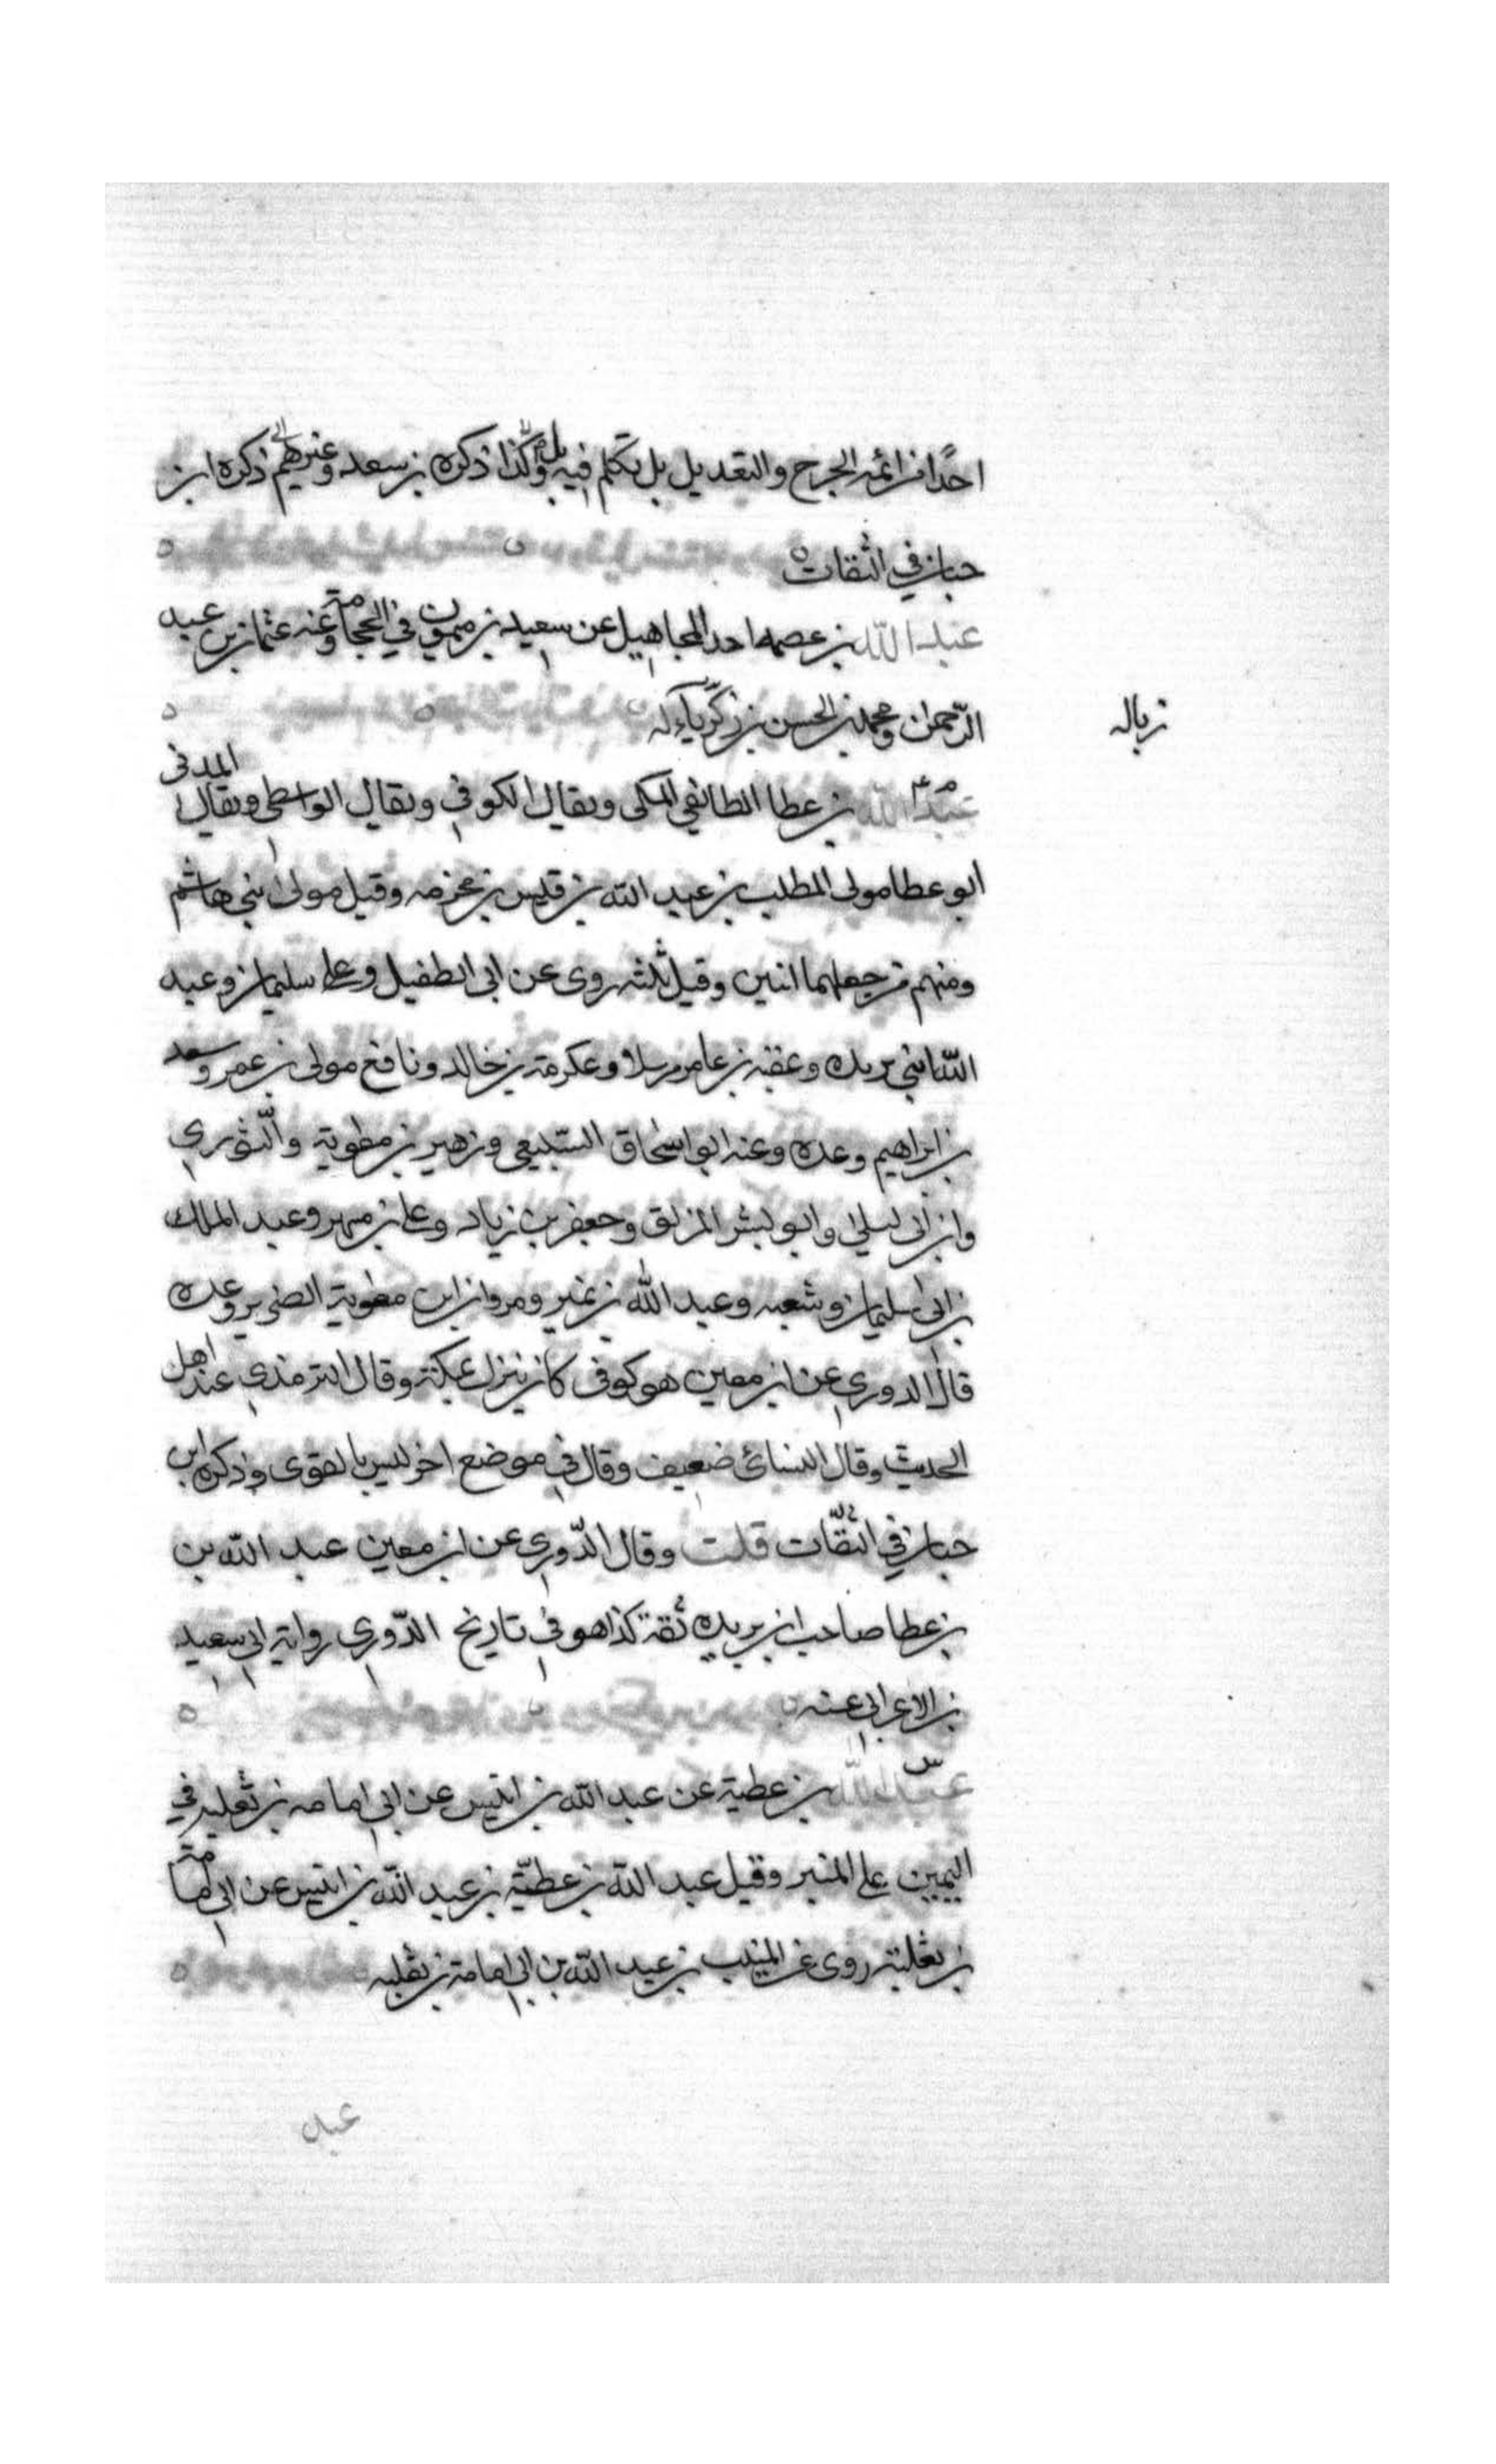 احدًا من ائمه الجرح والتعديل بل تكلم فيه بل وكذا ذكره بن سعد وغيرهم ذكره ابن
حبان في الثقات
عبد الله بن عصمه احد المجاهيل عن سعيد بن ميمون في الحجامة وعنه عثمان بن عبد
الرحمن ومحمد بن الحسن بن زكرياء له
زباله
عبد الله بن عطا الطائفي المكى ويقال الكوفي ويقال الواسطى ويقال المدنى
ابو عطا مولى المطلب بن عبد الله بن قيس بن مخرمه وقيل مولى بني هاشم
ومنهم من جعلهما اثنين وقيل ثلثه روى عن ابى الطفيل وعلى سليمان وعبد
الله ابني بريده وعقبه بن عامر مرسلا وعكرمة بن خالد ونافع مولى بن عمر وسعد
بن ابراهيم وعده وعنه ابو اسحاق السبيعي وزهير بن معوية والثوري
وابن ابى ليلى وابو بشر المزلق وجعفر بن زياد وعلى بن مسهر وعبد الملك
بن ابى سليمان وشعبه وعبد الله بن نمير ومروان ابن معوية الضرير وعده
قال الدوري عن ابن معين هو كوفى كان ينزل بمكة وقال الترمذي عند اهل
الحديث وقال النسائى ضعيف وقال في موضع اخر ليس بالقوى وذكره ابن
حبان في الثقات قلت وقال الدّوري عن ابن معين عبد الله بن
بن عطا صاحب ابن بريده ثقة كذا هو في تاريخ الدّوري رواية ابى سعيد
بن الاعرابي عنه
عبد الله بن عطية عن عبد الله بن انيس عن ابى امامه بن ثعلبه في
اليمين على المنبر وقيل عبد الله بن عطيّة بن عبد الله بن انيس عن ابى امامة
بن ثعلبة روى عن المنيب بن عبد الله بن ابى امامة بن ثعلبه
عبد